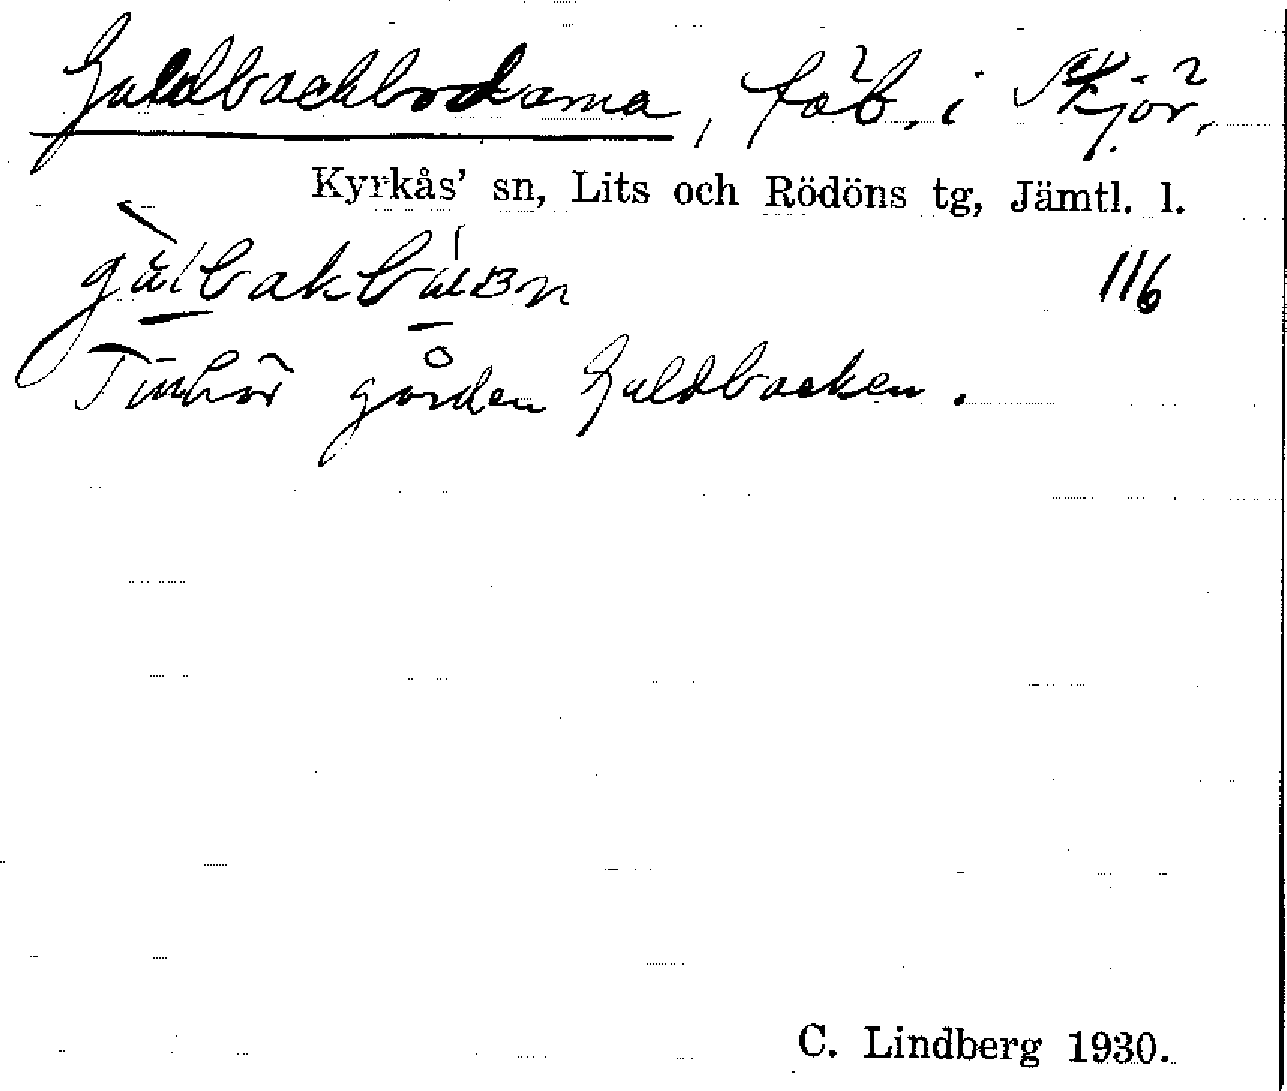 Guldbackbodarna, fäb. i Skjör,
Kyrkås' sn, Lits och Rödöns tg, Jämtl. l.
116
Tillhör gården Guldbacken.
C. Lindberg 1930.